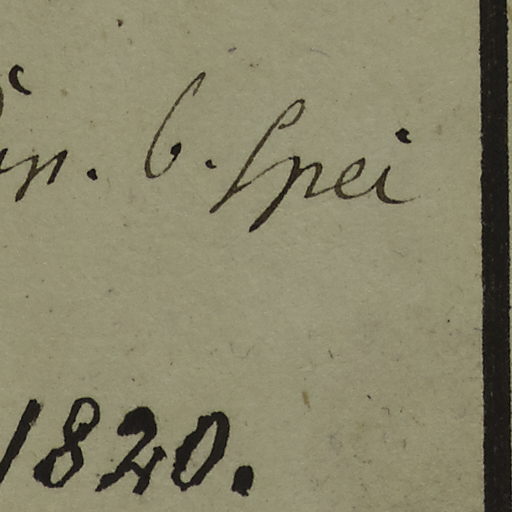 6. Spei
1820.